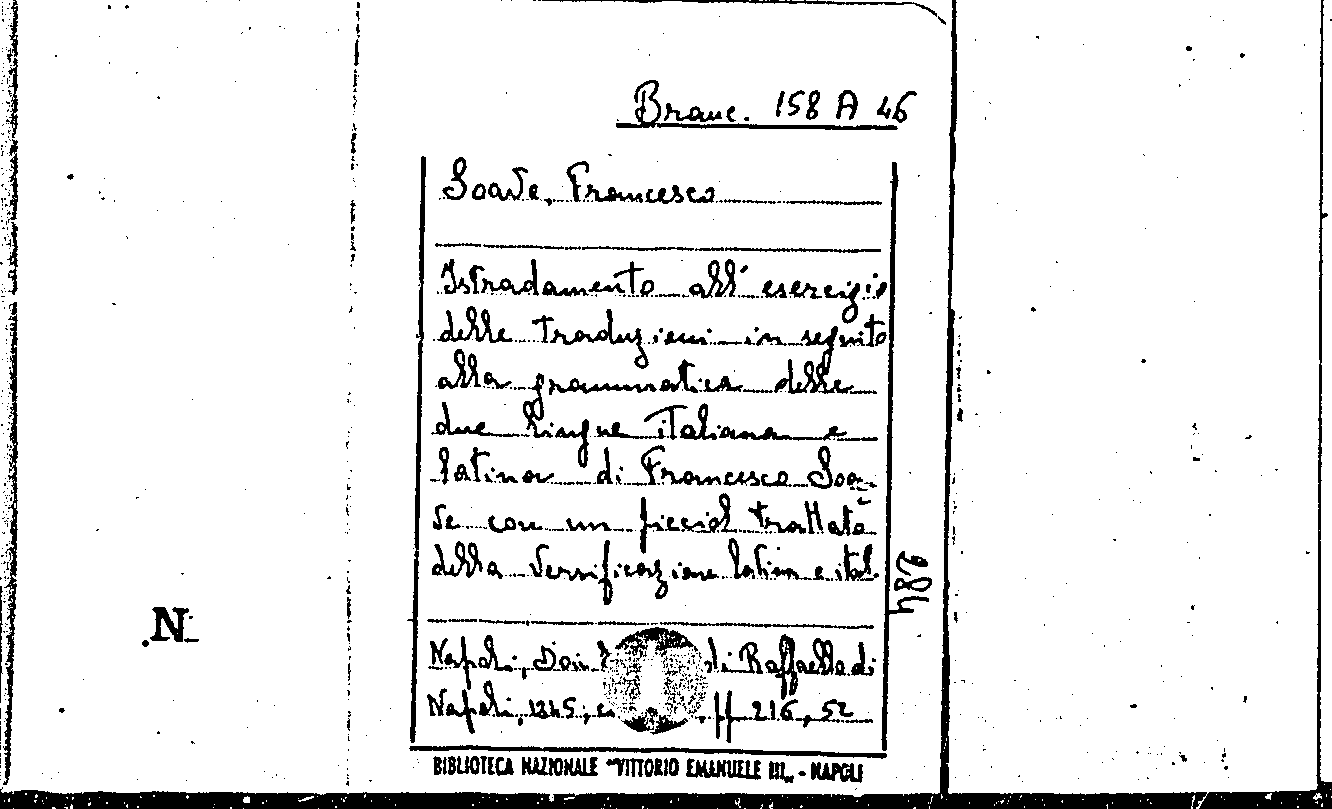 Branc. 158 A 46
Soave, Francesco
Istradamento all'esercizio
delle traduzioni in seguito
alla grammatica delle
due lingue italiana e
latina di Francesco Soa-
ve con un picciol trattato
della versificazione latina e ital.
284
N
Napoli, Dai di Raffaello di
Napoli, 1845; pp 216, 52
BIBLIOTECA NAZIONALE "VITTORIO EMANUELE III„ - NAPOLI